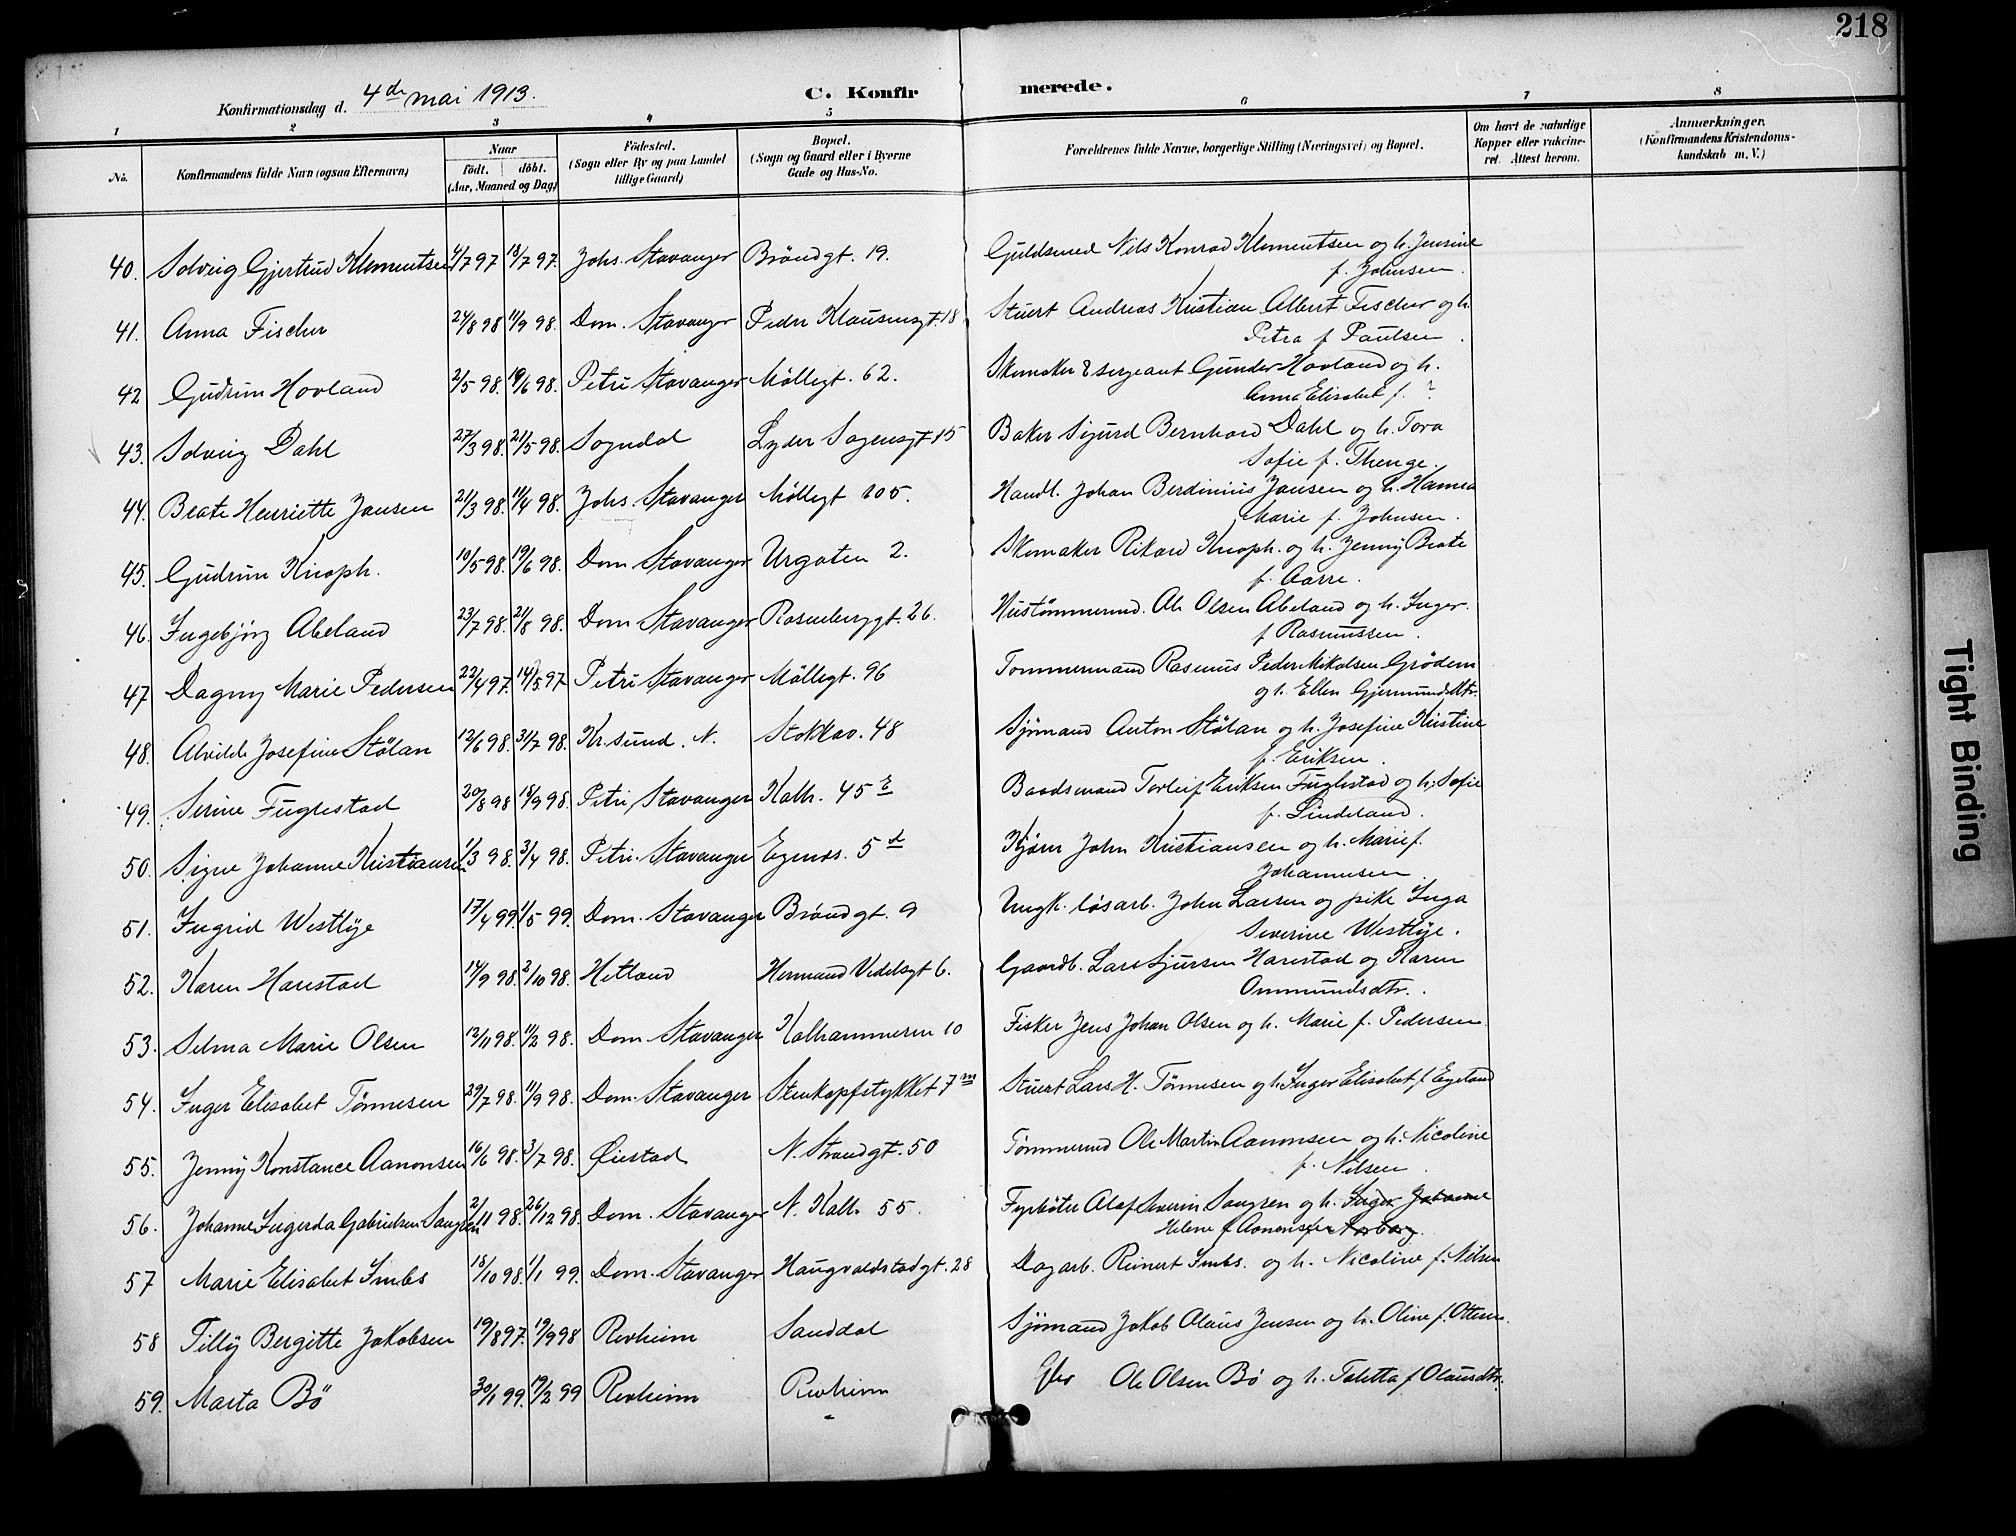 218
Konfirmationsdag d. 4de mai 1913. C. Konfirmerede.
1 2 3 4 5 6 7 8
No. Konfirmandens fulde Navn (ogsaa Efternavn) Naar født. døbt. (Aar, Maaned og Dag) Fødested. (Sogn eller By og paa Landet tillige Gaard) Bopæl. (Sogn og Gaard eller i Byerne Gade og Hus-No. Forældrenes fulde Navne, borgerlige Stilling (Næringsvei) og Bopæl. Om havt de naturlige Kopper eller vakcineret. Attest herom. Anmærkninger. (Konfirmandens Kristendomskundskab m. V.)
40. Solveig Gjertrud Klementsen 4/7 97 18/7 97. Johs. Stavanger Brøndgt. 19. Guldsmed Nils Konrad Klementsen og h. Jensine
f. Johnsen.
41. Anna Fischer 24/8 98 11/9 98. Dom. Stavanger Peder Klausensgt. 18 Stuert Andreas Kristian Albert Fischer og h.
Petra f. Paulsen.
42 Gudrun Hovland 2/5 98. 19/6 98. Petri Stavanger Møllegt. 62. Skomaker & sergeant Gunder Hovland og h.
Anna Elisabet f. ?
43. Solveig Dahl 27/3 98. 21/5 98. Sogndal Lyder Sagensgt 15 Baker Sigurd Bernhard Dahl og h. Tora
Sofie f. Thenge.
44. Beate Henriette Jansen 21/3 98. 11/4 98. Johs. Stavanger Møllegt 105. Handl. Johan Berdinius Jansen og h. Hanna
Marie f. Johnsen.
45. Gudrun Knoph. 10/5 98. 19/6 98. Dom Stavanger Urgaten 2. Skomaker Rikard Knoph. og h. Jenny Beate
f. Aarre.
46. Ingebjørg Abeland 23/7 98. 21/8 98. Dom Stavanger Rosenberggt. 26. Hustømmermd. Ole Olsen Abeland og h. Inger
f Rasmussen.
47 Dagny Marie Pedersen 22/4 97. 14/5 97. Petri Stavanger Møllegt. 96 Tømmermand Rasmus Peder Mikalsen Grødem
og h. Ellen Gjermundsdtr.
48. Alvilde Josefine Stölan 12/6 98. 31/7 98. Kr. sund. N. Stokkav. 48 Sjømand Anton Stölan og h. Josefine Kristine
f. Eriksen.
49. Serine Fuglestad 20/8 98 18/9 98. Petri Stavanger Kalh. 45 E Baadsmand Torleif Eriksen Fuglestad og h. Sofie
f. Lindeland.
50. Signe Johanne Kristiansen 1/3 98. 3/4 98. Petri Stavanger Egenes. 5 Kjører John Kristiansen og h. Marie f.
Johannesen
51. Ingrid Westlye 17/4 99. 1/5 99. Dom. Stavanger Brøndgt. 9 Ungk. løsarb. John Larsen og pike Inga
Severine Westlye.
52. Karen Harestad 14/9 98. 2/10 98. Hetland Hermand Vedelsgt 6. Gaardb. Lars Sjursen Harestad og Karen
Ommundsdtr.
53. Selma Marie Olsen 12/11 98. 11/2 98. Dom Stavanger Kalhammeren 10 Fisker Jens Johan Olsen og h. Marie f. Pedersen
54. Inger Elisabet Tønnesen 29/7 98. 11/9 98. Dom. Stavanger Stenkopfstykket 7 m Stuert Lars H. Tønnesen og h. Inger Elisabet f. Egeland
55. Jenny Konstance Aanonsen 16/6 98. 3/7 98. Øiestad N. Strandgt. 50 Tømmermd Ole Martin Aanonsen og h. Nicoline
f. Nilsen.
56. Johanne Ingerda Gabrielsen Sangren 2/11 98. 26/12 98. Dom. Stavanger N. Kalh. 55. Fyrbøter Olaf Severin Sangren og h. Inger Johanne
Helene f Aanensen Norberg.
57 Marie Elisabet Imbs 18/10 98. 1/1 99. Dom. Stavanger Haugvaldstadgt. 28 Dagarb. Reinert Imbs. og h. Nicoline f. Nilsen
58 Tilly Bergitte Jakobsen 19/8 97. 19/9 98 Revheim Sanddal Sjømand Jakob Olaus Jensen og h. Oline f. Ottesen.
59. Marta Bø 30/1 99. 19/2 99 Revheim Revheim Ole Olsen Bø og h. Taletta f Olausdtr.
Tight Binding